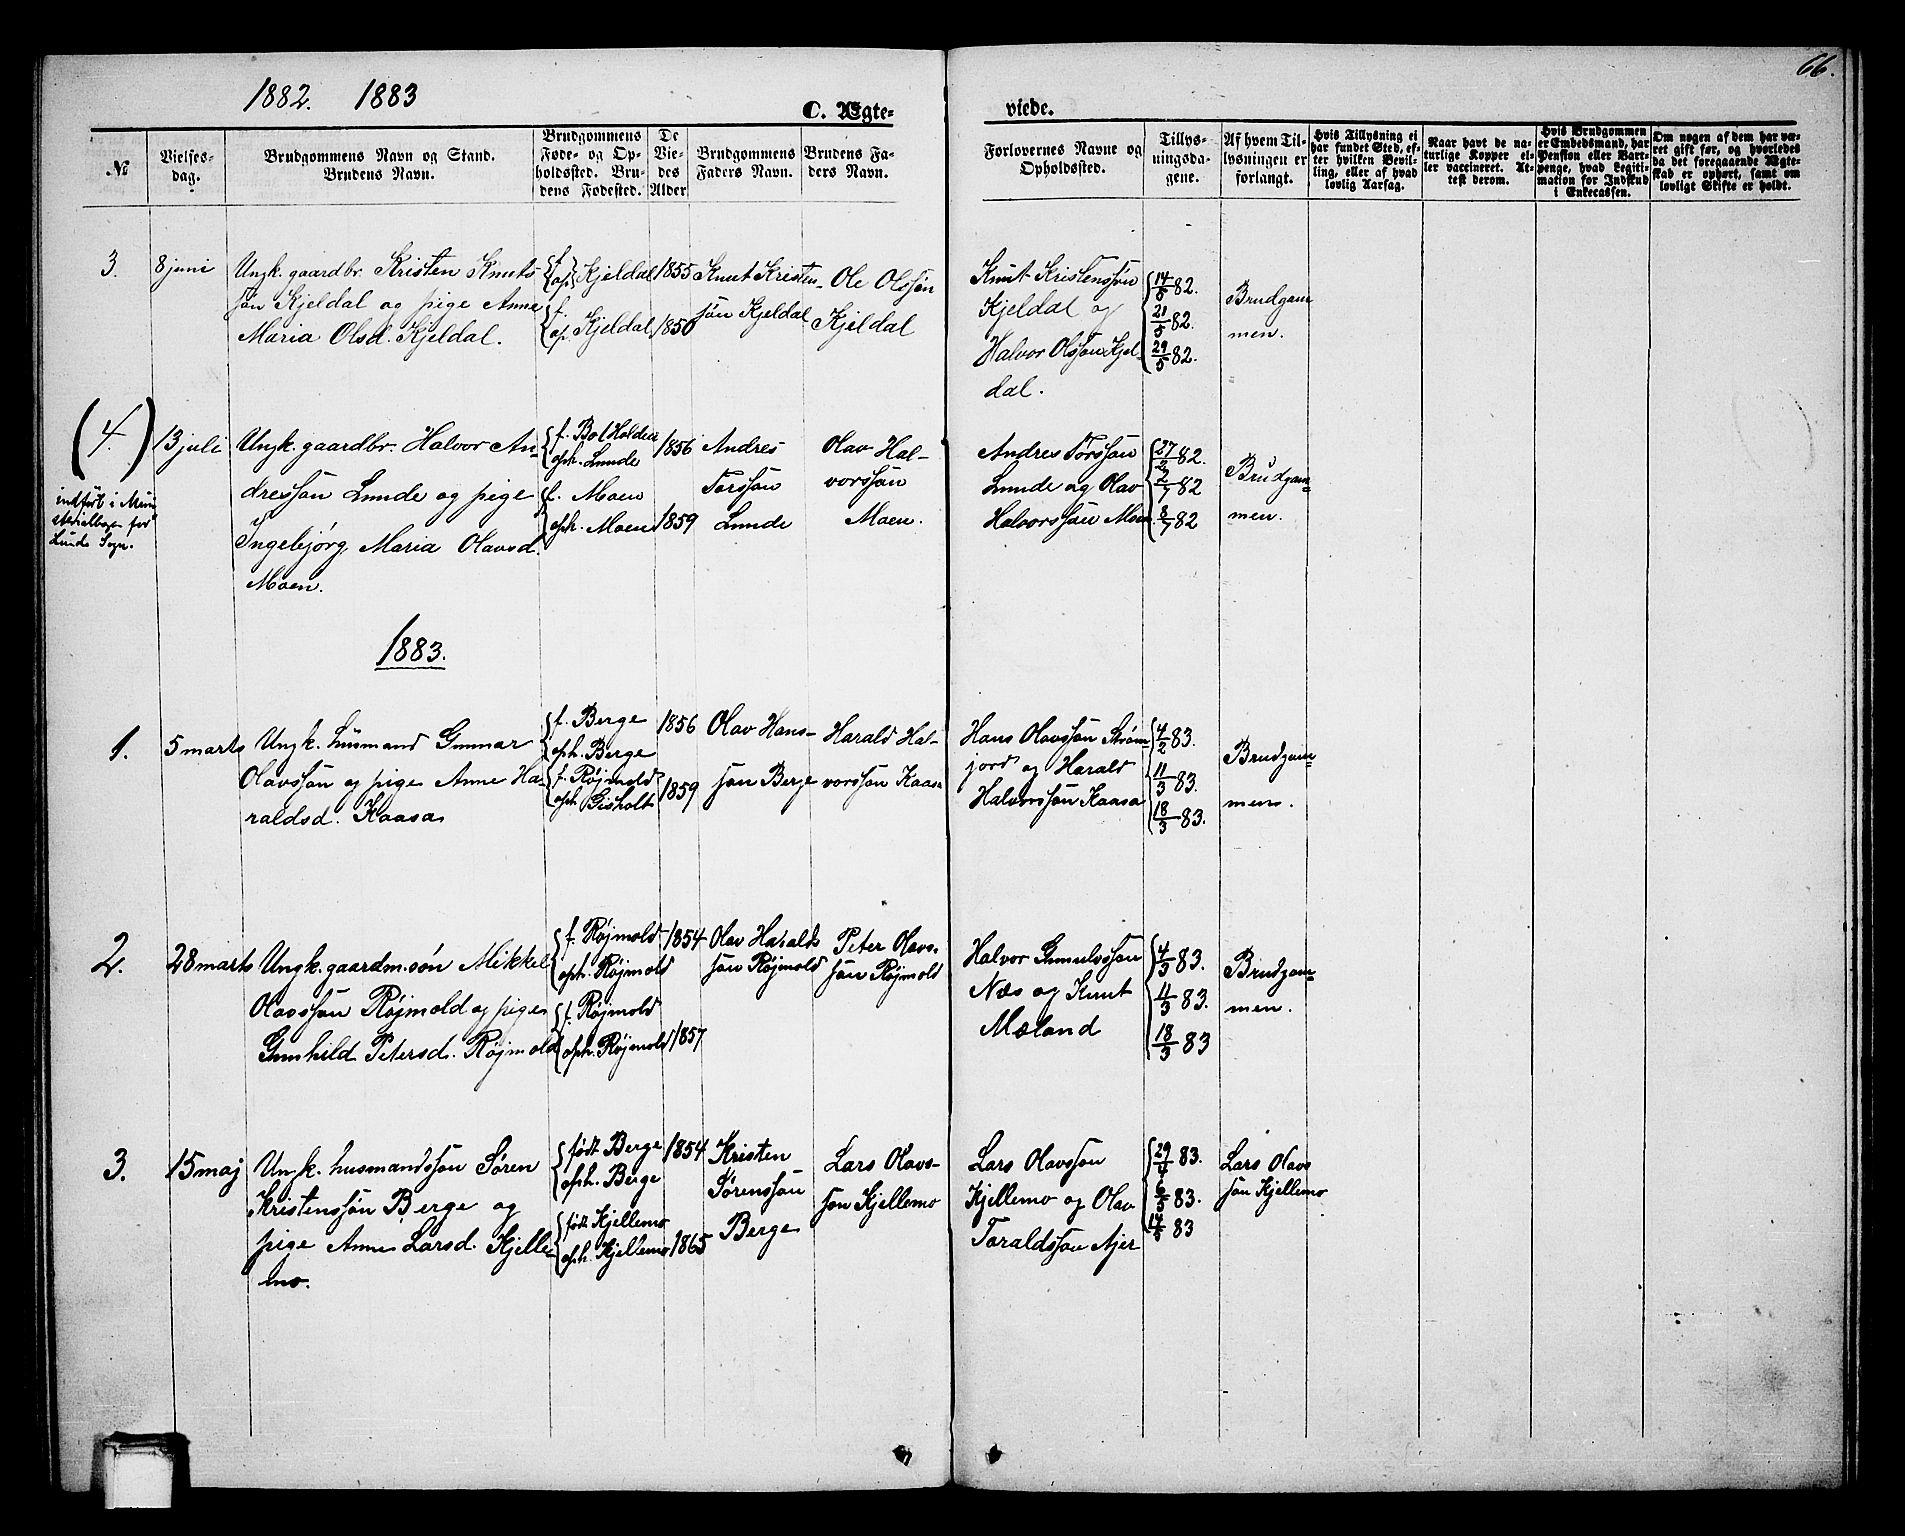 66.
1882. 1883
C. Ægte- viede.
№
Vielses-
dag.
Brudgommens Navn og Stand.
Brudens Navn.
Brudgommens
Føde- og Op-
holdssted. Bru-
dens Fødested.
De
Vie-
des
Alder
Brudgommens
Faders Navn.
Brudens Fa-
ders Navn.
Forlovernes Navne og
Opholdssted.
Tillys-
ningsda-
gene.
Af hvem Til-
lysningen er
forlangt.
Hvis Tillysning ei
har fundet Sted, ef-
ter hvilken Bevil-
ling, eller af hvad
lovlig Aarsag.
Naar havt de na-
turlige Kopper el-
ler vaccineret. At-
test derom.
Hvis Brudgommen
er Embedsmand, har
Pension eller Vart-
penge, hvad Legiti-
mation for Indskud
i Enkecassen.
Om nogen af dem har væ-
ret gift før, og hvorledes
da det foregaaende Ægte-
skab er ophørt, samt om
lovligt Skifte er holdt.
3.
8 juni
Ungk. gaardbr. Kristen Knuts
søn Kjeldal og pige Anne
Maria Olsd. Kjeldal.
f.
op. Kjeldal
f.
op. Kjeldal
1855
1850
Knut Kristen-
søn Kjeldal
Ole Olssøn
Kjeldal
Knut Kristenssøn
Kjeldal og
Halvor Olssøn Kjel-
dal.
14/5 82.
21/5 82.
29/5 82.
Brudgom
men.
(4.)
indført i Mini
sterialbogen for
Lunde Sogn.
13 juli
Ungk. gaardbr. Halvor An-
dressøn Lunde og pige
Ingebjørg Maria Olavsd.
Moen.
f. Bø i Holden
oph. Lunde
f. Moen
oph. Moen
1856
1859
Andres
Torssøn
Lunde
Olav Hal-
vorssøn
Moen.
Andres Torssøn
Lunde og Olav
Halvorssøn Moen
82.
2/7 82
8/7 82
Brudgom-
men.
1883.
1.
5 marts
Ungk. husmand Gunnar
Olavssøn og pige Anne Ha-
raldsd. Kaasa
f. Berge
oph. Berge
f. Røjmold
oph. Gisholt
1856
1859
Olav Hans-
søn Berge
Harald Hal-
vorssøn Kaasa
Hans Olavssøn Strøm-
jord og Harald
Halvorssøn Kaasa
4/2 83.
11/3 83.
18/3 83.
Brudgom-
men.
2.
28 marts
Ungk. gaardm.søn Mikkel
Olavssøn Røjmold og pige
Gunhild Petersd. Røjmold
f. Røjmold
oph. Røjmold
f. Røjmold
oph. Røjmold
1854
1857
Olav Haralds
søn Røjmold
Peter Olavs-
søn Røjmold
Halvor Gunulvssøn
Næs og Knut
Mæland
4/3 83.
11/3 83.
18/3 83
Brudgom-
men.
3.
15 maj
Ungk. husmandssøn Søren
Kristenssøn Berge og
pige Anne Larsd. Kjelle-
mo.
født Berge
oph. Berge
født Kjellemo
oph. Kjellemo
1854
1865
Kristen
Sørenssøn
Berge
Lars Olavs-
søn Kjellemo
Lars Olavssøn
Kjellemo og Olav
Taraldssøn Ajer
29/4 83.
6/5 83.
14/5 83
Lars Olavs
søn Kjellemo